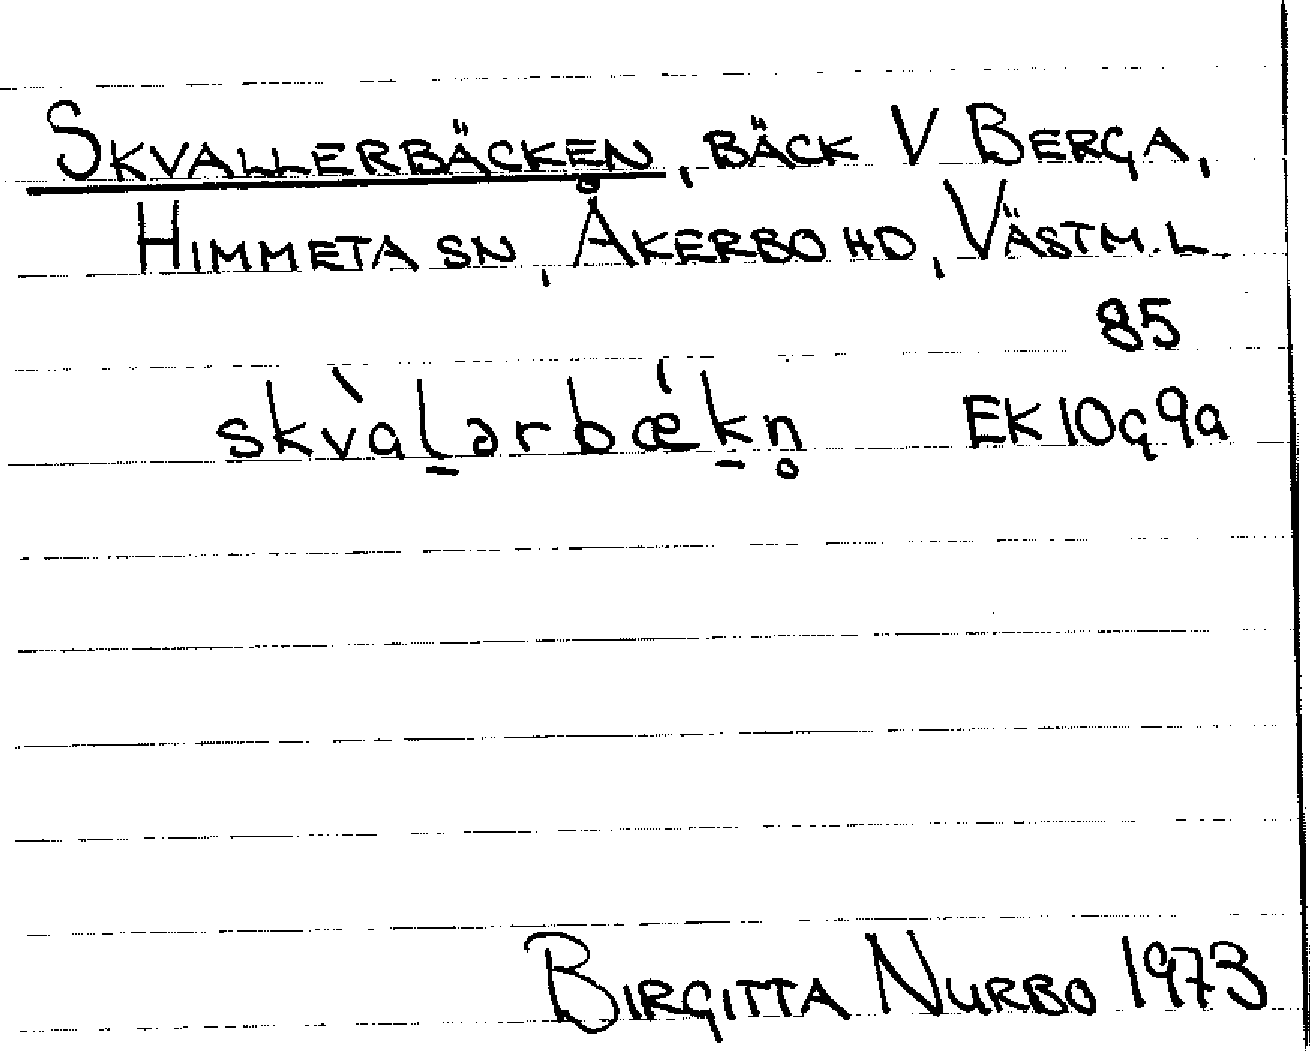 SKVALLERBÄCKEN, BÄCK V BERGA,
HIMMETA SN, ÅKERBO HD, VÄSTM. L
85
skvàl̠ərbǽk̠n̥ EK 10g 9a
BIRGITTA NURBO 1973